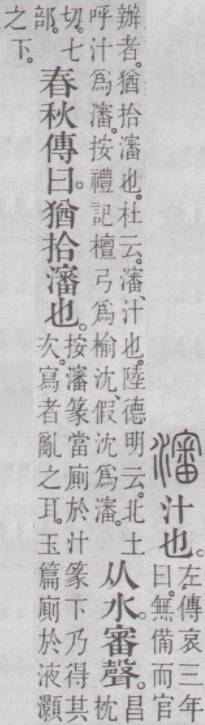 瀋汁也。
左傳哀三年
曰。無備而官
辦者。猶拾瀋也。杜云。瀋、汁也。陸德明云。北土
呼汁爲瀋。按禮記檀弓爲榆沈、假沈爲瀋。
从水。審聲。
昌
枕
切。七
部。
春秋傳曰。猶拾瀋也。
按瀋篆當廁於汁篆下乃得其
次。寫者亂之耳。玉篇廁於液灝
之下。